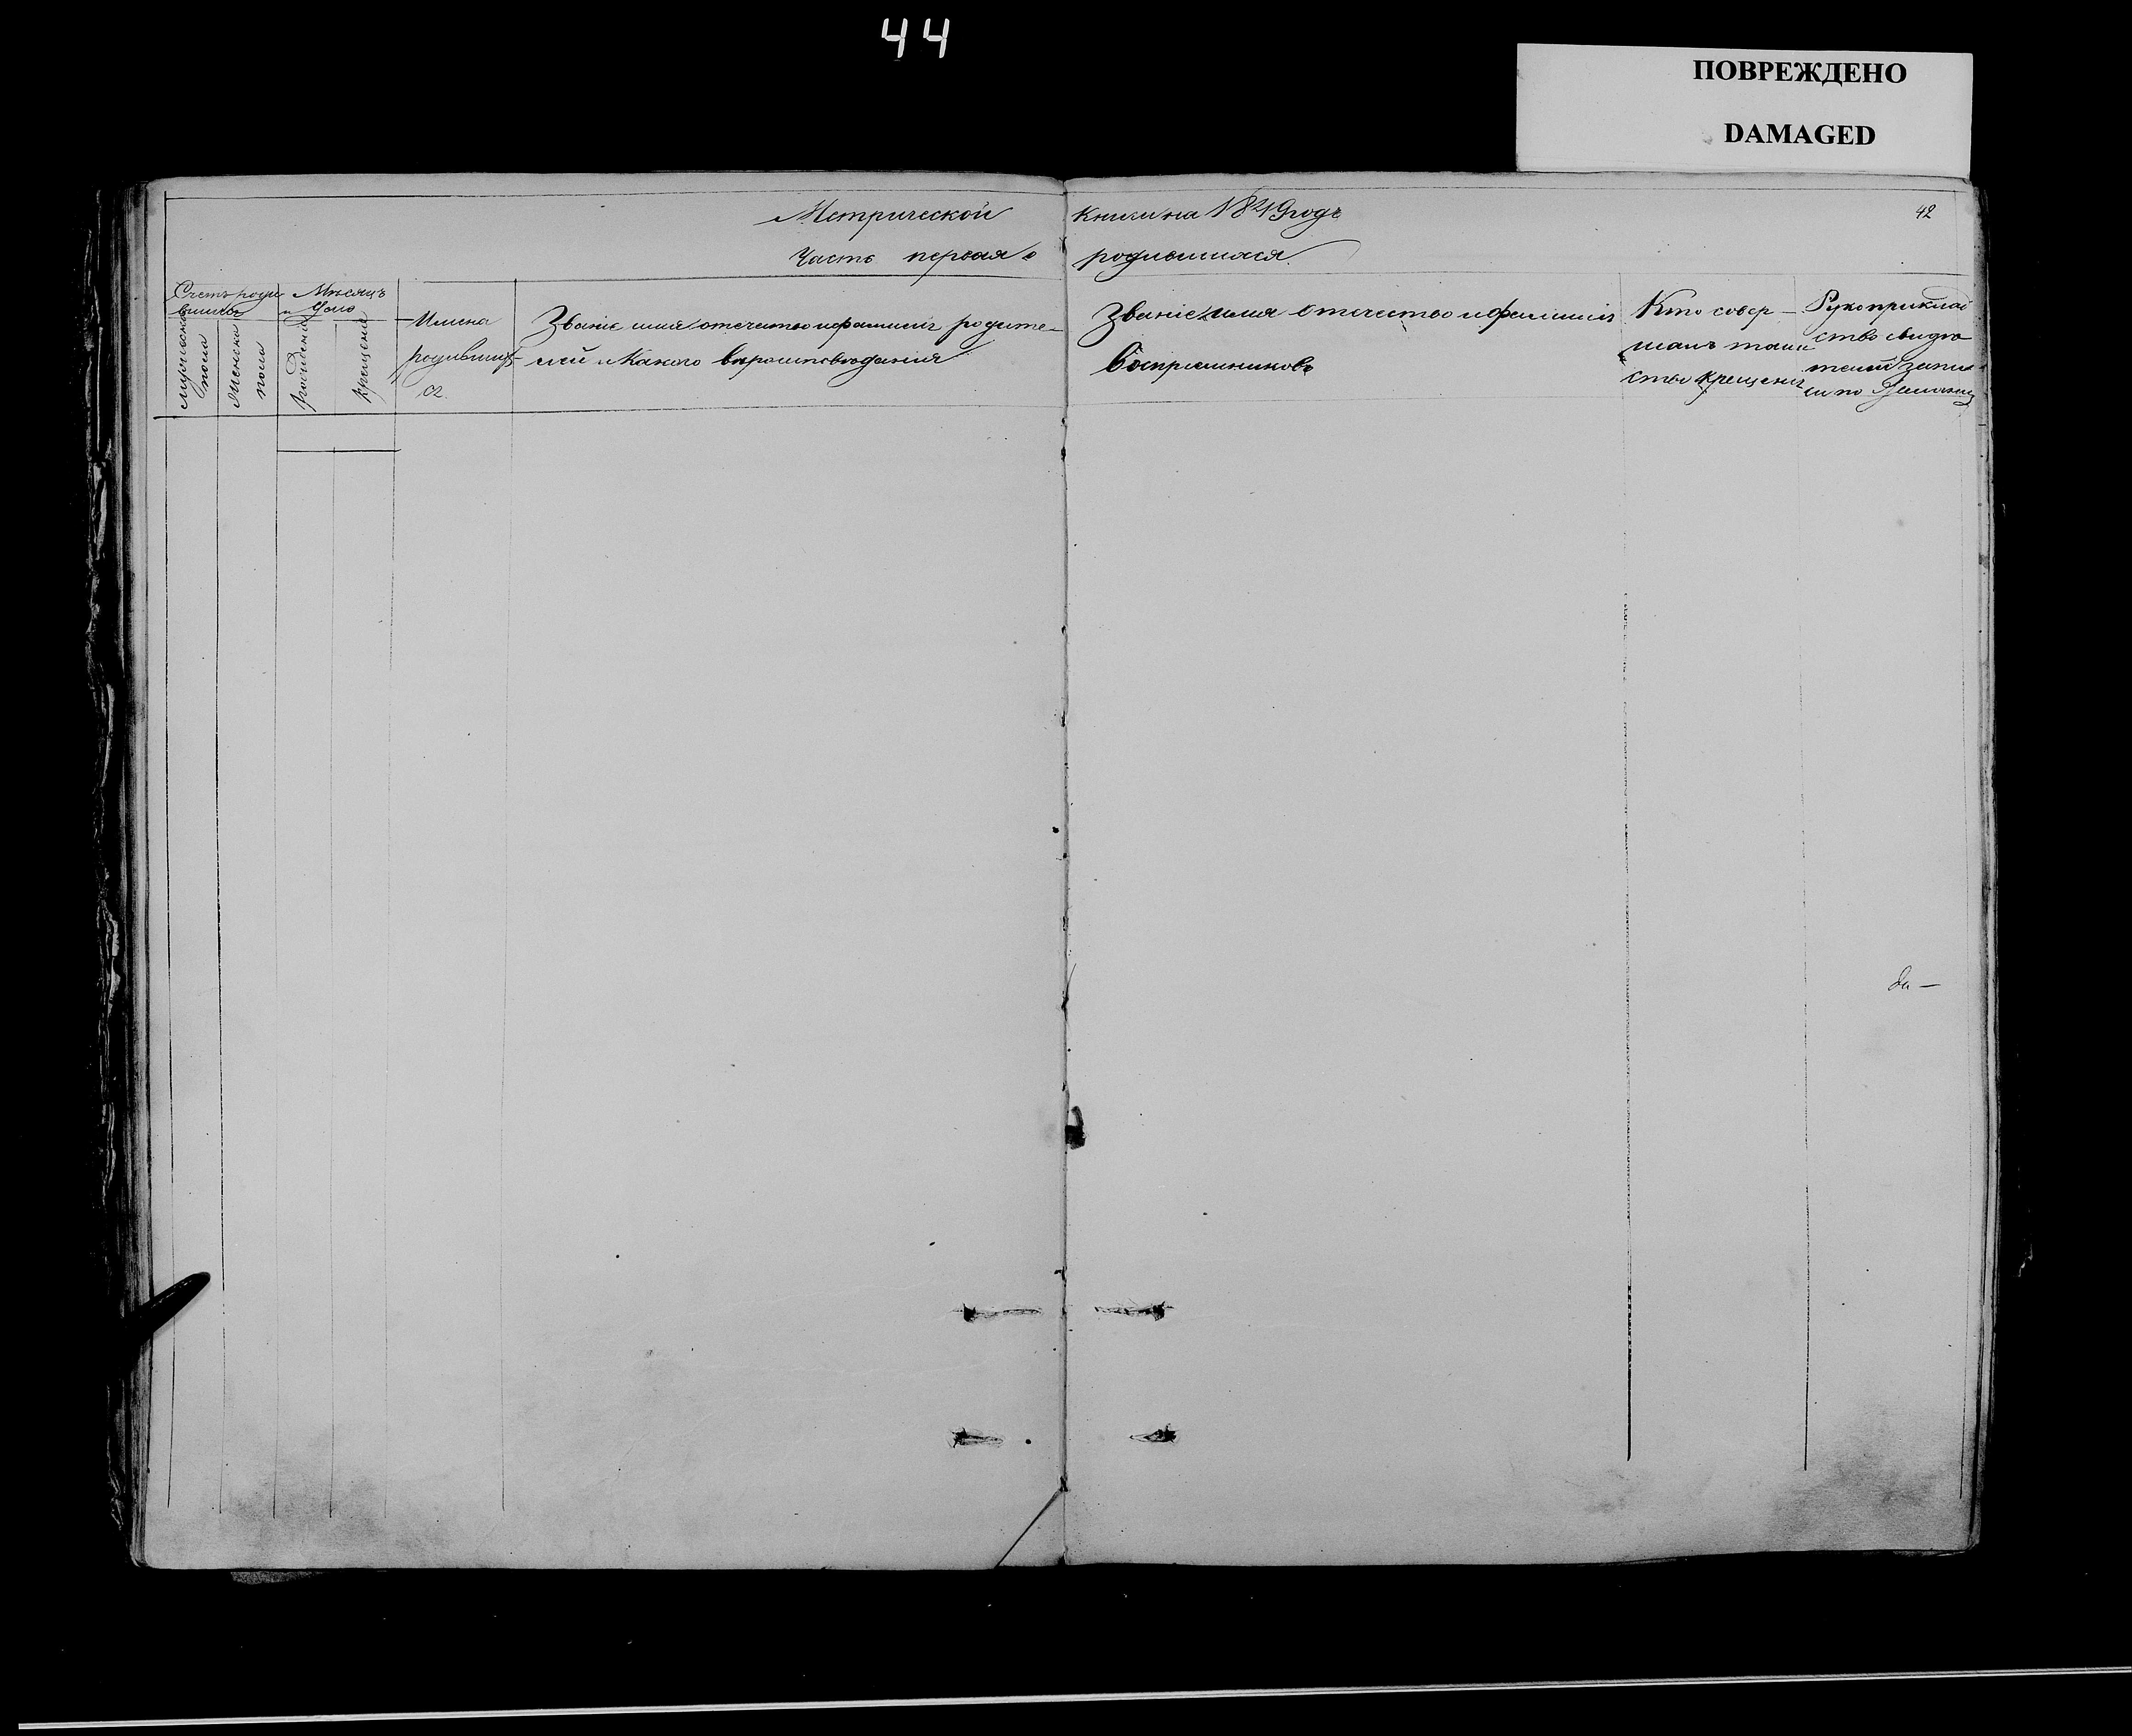 44
ПОВРЕЖДЕНО
DAMAGED
Метрической книги на 1849 годъ
42
Часть первая о родившихся
Счетъ роди
вшихся
Мужеска
пола
Женска
пола
Мѣсяцъ
и число
рожденія
крещенія
Имена
родивших
ся
Званіе имя отечество и фамилія родите-
лей и Какого вѣроисповѣданія
Званіе имя отечество и фамилія
Воспріемниковъ
Кто совер-
шалъ таин
ство крещенія
Рукоприклад
ство свидѣ
телей записи
си по Желанію
да —